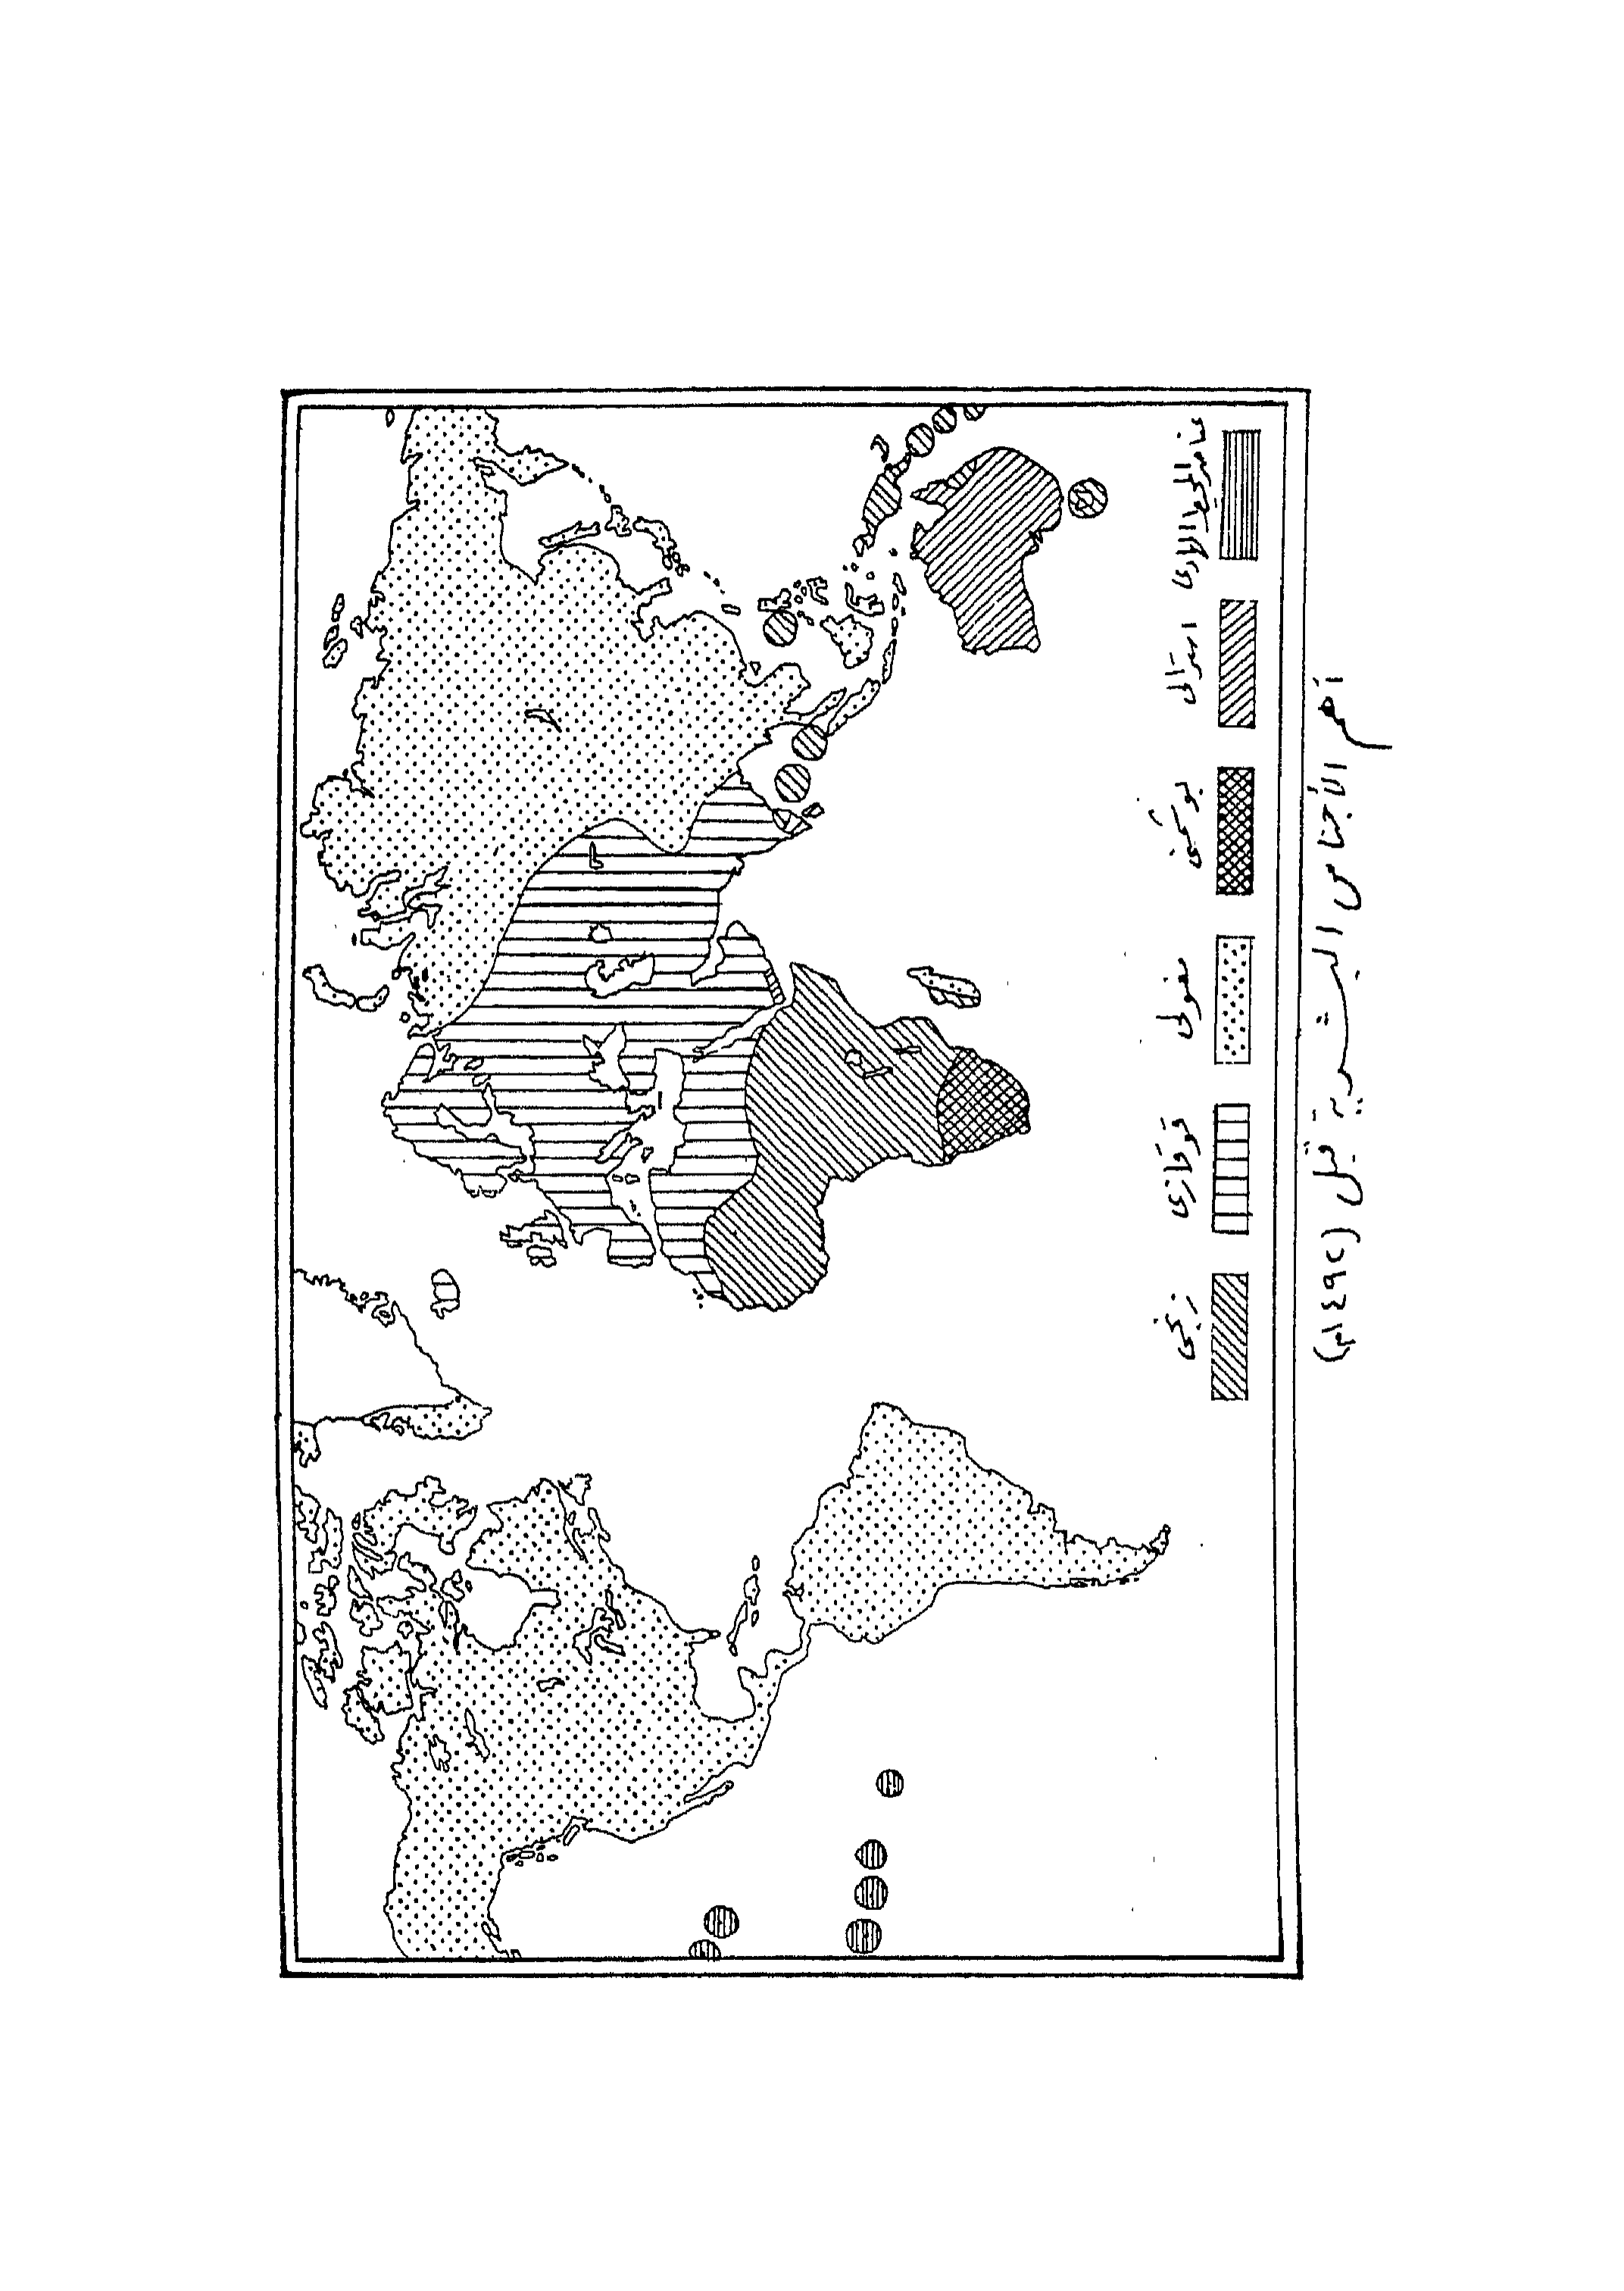 عناصر المحيط الهادى
استرالى
بوشمنى
مغولى
قوقازى
زنجى
أهم الأجناس البشرية قبل (١٤٩٢م)